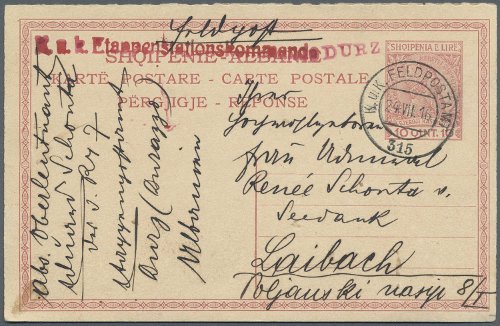 Feldpost
K. u. k. Etappenstationskommando DURZ
SHQIPENIE - ALBANIE
KARTË POSTARE - CARTE POSTALE
PËRGJIGJE - RÉPONSE
SHQIPENIA E LIRË
10 QINT. 10
K.u.K. FELDPOSTAMT
24.VII.16
315
Abs. Oberleutnant
Schonta
der
Durz (Durazzo)
Albanien
Ihrer
Hochwohlgeboren
Frau Admiral
Renée Schonta v.
Seedank
Laibach
Poljanski nasip 8/I